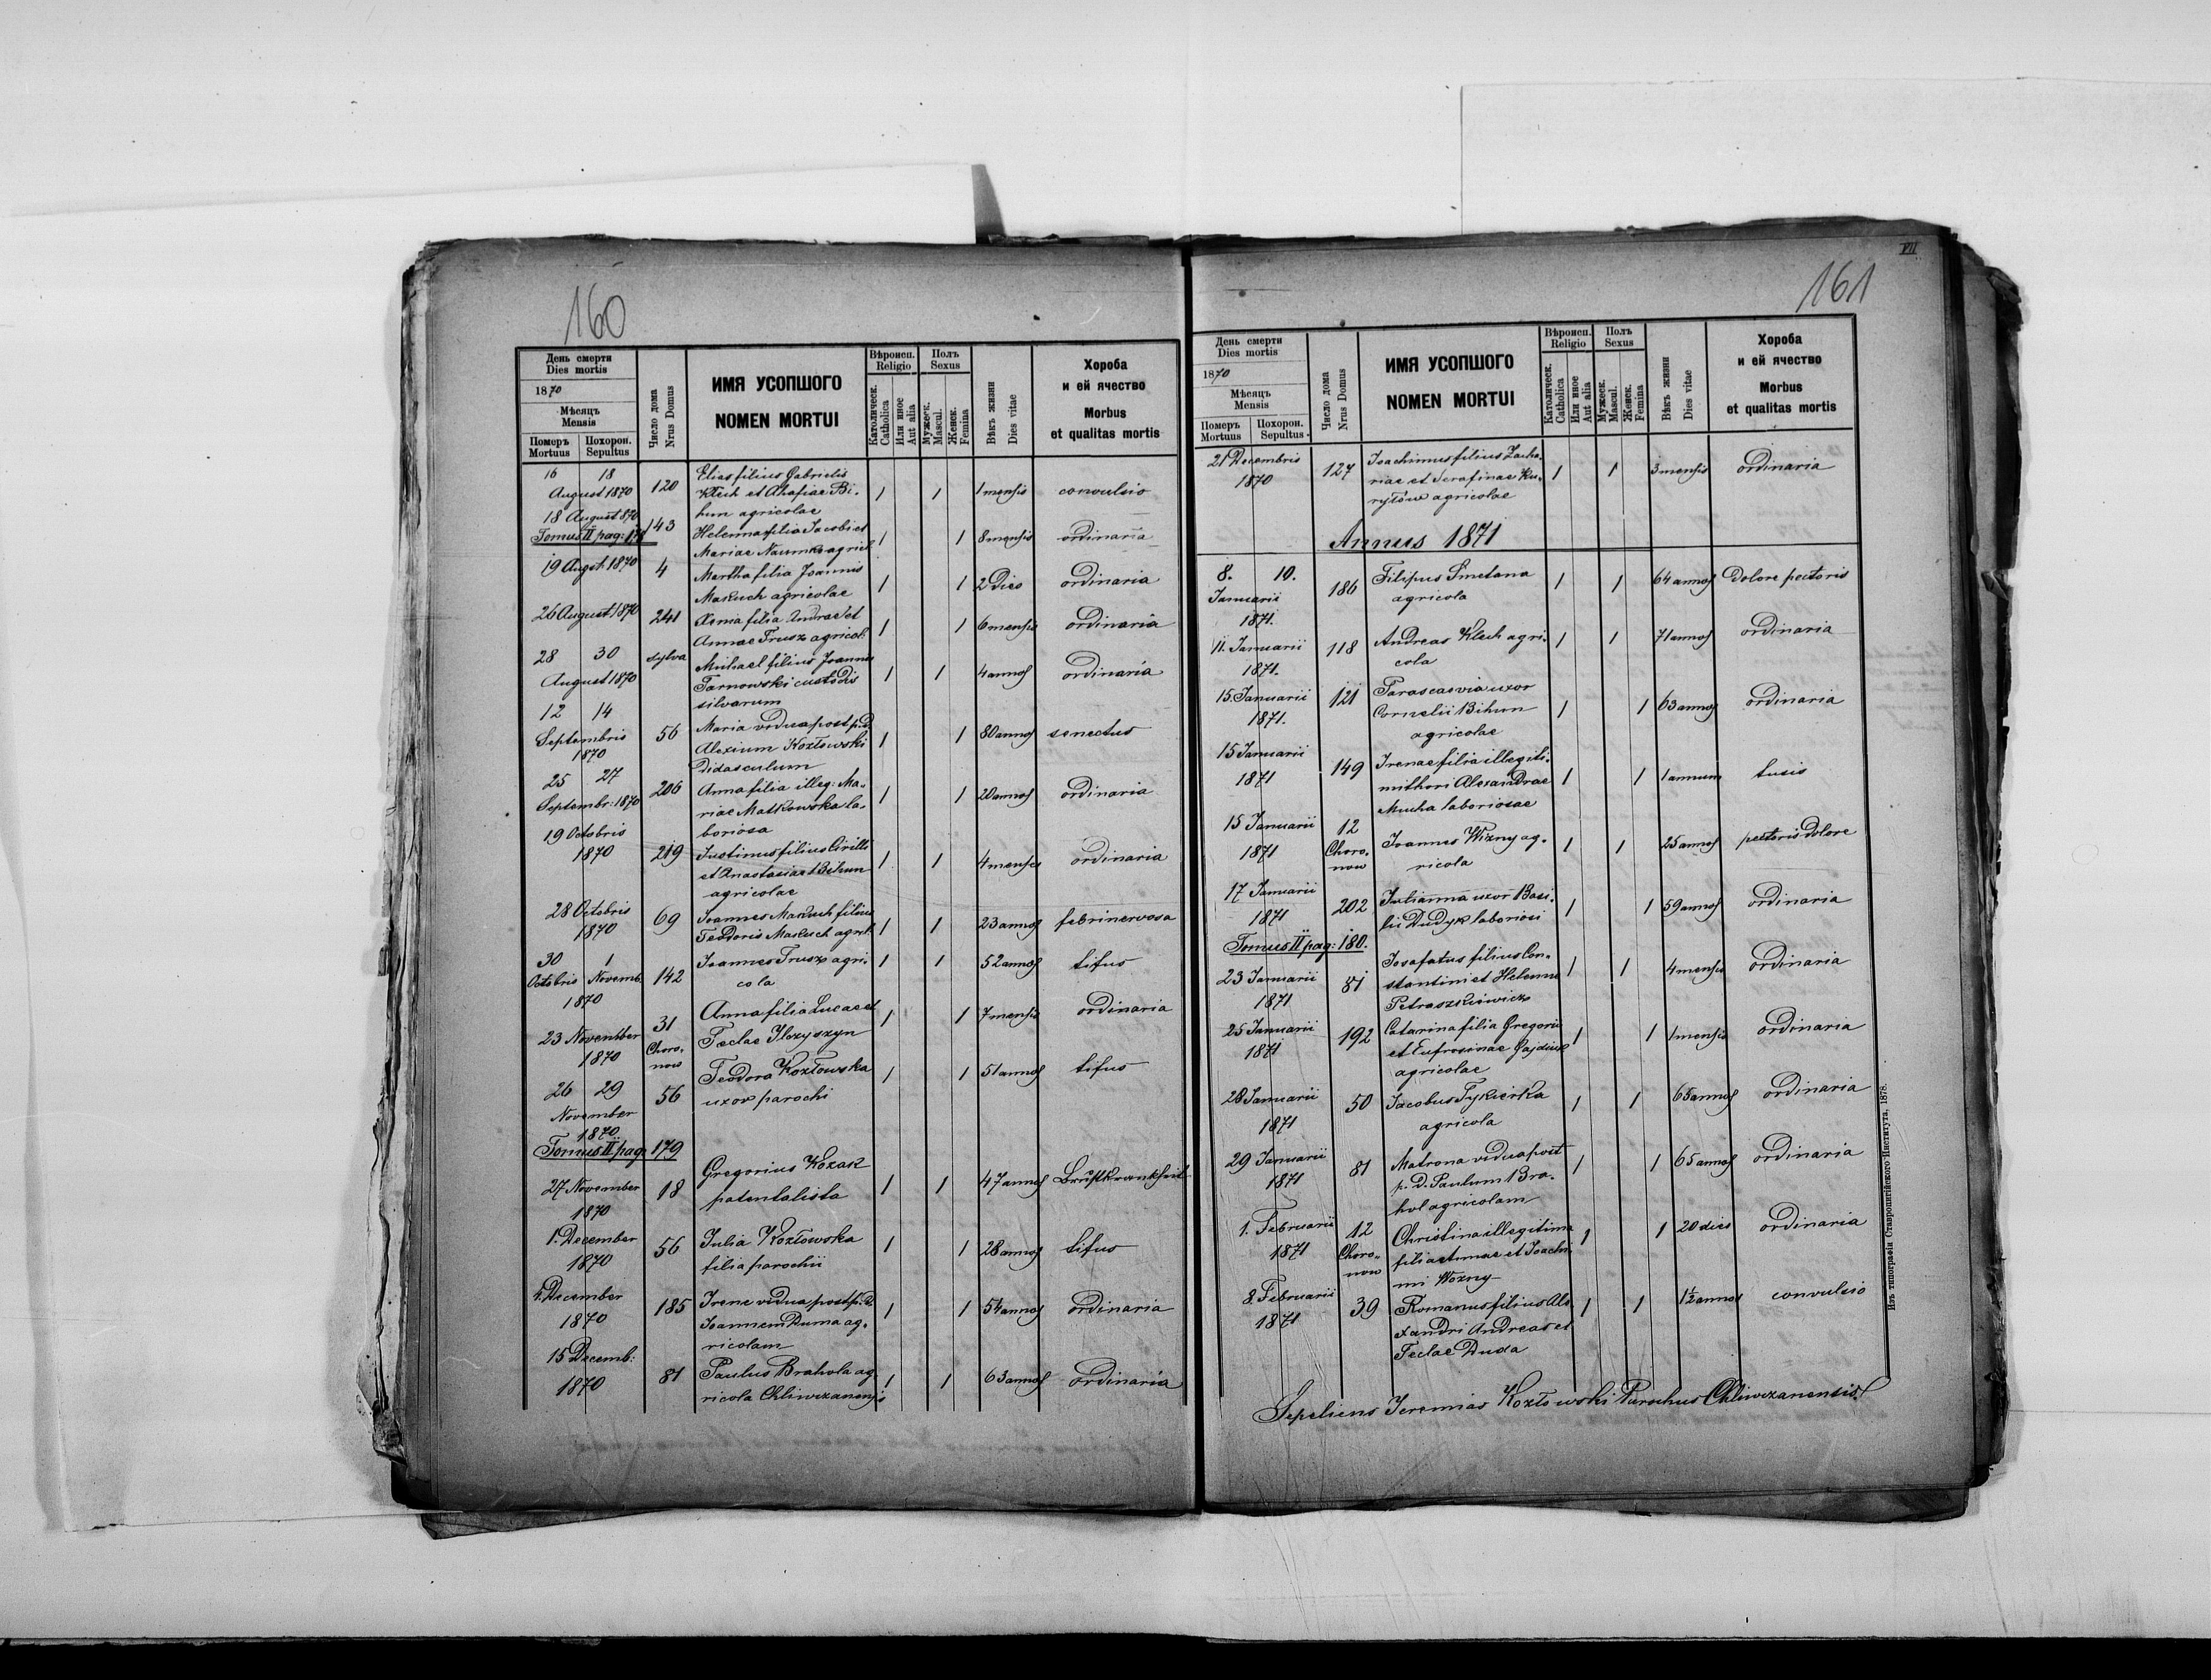 160
День смерти
Dies mortis
1870
Мѣсяцъ
Mensis
Померъ Похорон.
Mortuus Sepultus
Число дома
Nrus Domus
ИМЯ УСОПШОГО
NOMEN MORTUI
Вѣроисп.
Religio
Католическ.
Catholica
Или иное
Aut alia
Полъ
Sexus
Мужеск.
Mascul.
Женск.
Femina
Вѣкъ жизни
Dies vitae
Хороба
и ей ячество
Morbus
et qualitas mortis
16 18
August 1870 120 Elias filius Gabrielis
Klech et Ahafiae Bi-
hun agricolae 1 1 1 mensis convulsio
18 August 870
Tomus II pag: 43 Helenna filia Jacobi et
Mariae Naumko agricol 1 1 8 mensis ordinaria
19 Augst 1870 4 Martha filia Joannis
Makuch agricolae 1 1 2 Dies ordinaria
26 August 1870 241 Anna filia Andreae et
Annae Trusz agricol: 1 1 6 mensis ordinaria
28 30
August 1870 sylva Michael filius Joannis
Tarnowski custodis
silvarum 1 1 4 annos ordinaria
12 14
Septembris
1870 56 Maria vidua post p. d.
Alexium Kozłowski
Didasculum 1 1 80 annos senectus
25 27
Septembr: 1870 206 Anna filia illeg: Ma-
riae Matkowska la-
boriosa 1 1 20 annos ordinaria
19 Octobris
1870 219 Justinus filius Cirilli
et Anastasiae Bihun
agricolae 1 1 4 menses ordinaria
28 Octobris
1870 69 Joannes Makuch filius
Teodoris Makuch agricol. 1 1 23 annos febrinervosa
30 1
Octobris Novemb.
1870 142 Joannes Trusz agri-
cola 1 1 52 annos tifus
23 November
1870 31
Choro-
now Anna filia Lucae et
Teclae Ilczyszyn 1 1 7 mensis ordinaria
26 29
November
1870 56 Teodora Kozłowska
uxor parochi 1 1 51 annos tifus
Tomus II pag. 179
27 November
1870 18 Gregorius Kozak
patentalista 1 1 47 annos Brustkrankheit
1. December
1870 56 Julia Kozłowska
filia parochii 1 1 28 annos tifus
December
1870 185 Irene vidua post p. d.
Joannem Duma ag-
ricolam 1 1 54 annos ordinaria
15 Decemb:
1870 81 Paulus Brahola ag
ricola Chliwczanensis 1 1 63 annos ordinaria
VII
161
День смерти
Dies mortis
1870
Мѣсяцъ
Mensis
Померъ Похорон.
Mortuus Sepultus
Число дома
Nrus Domus
ИМЯ УСОПШОГО
NOMEN MORTUI
Вѣроисп.
Religio
Католическ.
Catholica
Или иное
Aut alia
Полъ
Sexus
Мужеск.
Mascul.
Женск.
Femina
Вѣкъ жизни
Dies vitae
Хороба
и ей ячество
Morbus
et qualitas mortis
21 Decembris
1870 127 Joachimus filius Zacha-
riae et Serafinae Ku-
ryłów agricolae 1 1 3 mensis ordinaria
Annus 1871
8. 10.
Januarii
1871. 186 Filipus Smetana
agricola 1 1 64 annos Dolore pectoris
11. Januarii
1871. 118 Andreas Klech agri-
cola 1 1 71 annos ordinaria
15. Januarii
1871. 121 Parascavia uxor
Cornelii Bihun
agricolae 1 1 63 annos ordinaria
15 Januarii
1871 149 Irenae filia illegiti-
mithori Alexandrae
Mucha laboriosae 1 1 1 annum tusis
15 Januarii
1871 12
Choro-
now Joannes Wizny ag-
ricola 1 1 25 annos pectoris Dolore
17 Januarii
1871 202 Julianna uxor Basi-
lii Dudyk laboriosi 1 1 59 annos ordinaria
Tomus II pag: 180.
23 Januarii
1871 81 Josafatus filius Con-
stantini et Helennae
Petraszkiewicz 1 1 4 mensis ordinaria
25 Januarii
1871 192 Catarina filia Gregorii
et Eufrosinae
agricolae 1 1 1 mensis ordinaria
28 Januarii
1871 50 Jacobus Tykierka
agricola 1 1 65 annos ordinaria
29 Januarii
1871 81 Matrona vidua post
p. d. Paulum Bra-
hol agricolam 1 1 65 annos ordinaria
1. Februarii
1871 12
Choro-
now Christina illegitima
filia Annae et Joachi
mi Wozny 1 1 20 dies ordinaria
8. Februarii
1871 39 Romanus filius Ale
xandri Andreas et
Teclae Duda 1 1 1½ annos convulsio
Sepeliens Jeremias Kozłowski Parochus Chliwczanensis.
Изъ типографіи Ставропигійского Института, 1878.